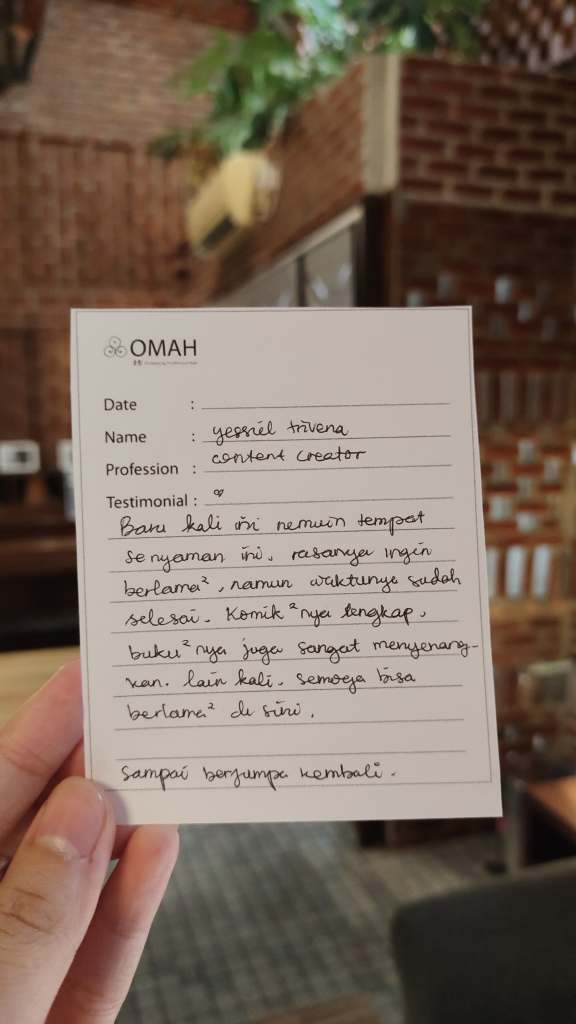 OMAH
Date :
Name : yessiel trivena
Profession : content creator
Testimonial :
Baru kali ini nemuin tempat
senyaman ini. rasanya ingin
berlama², namun waktunya sudah
selesai. Komik²nya lengkap,
buku²nya juga sangat menyenang-
kan. lain kali. semoga bisa
berlama² di sini.
sampai berjumpa kembali.